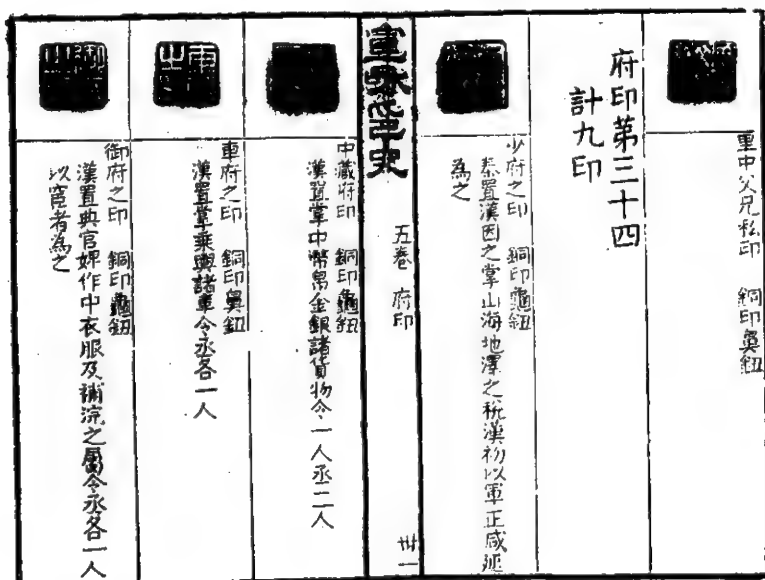 里中父兄私印　銅印鼻鈕
府印第三十四
計九印
少府之印　銅印龜鈕
秦置漢因之掌山海地澤之稅漢初以軍正咸延
為之
宣和集古印史
五卷　府印
卅一
中藏府印　銅印龜鈕
漢置掌中幣帛金銀諸貨物令一人丞二人
車府之印　銅印鼻鈕
漢置掌乘輿諸車令丞各一人
御府之印　銅印龜鈕
漢置典官婢作中衣服及補浣之屬令丞各一人
以宦者為之